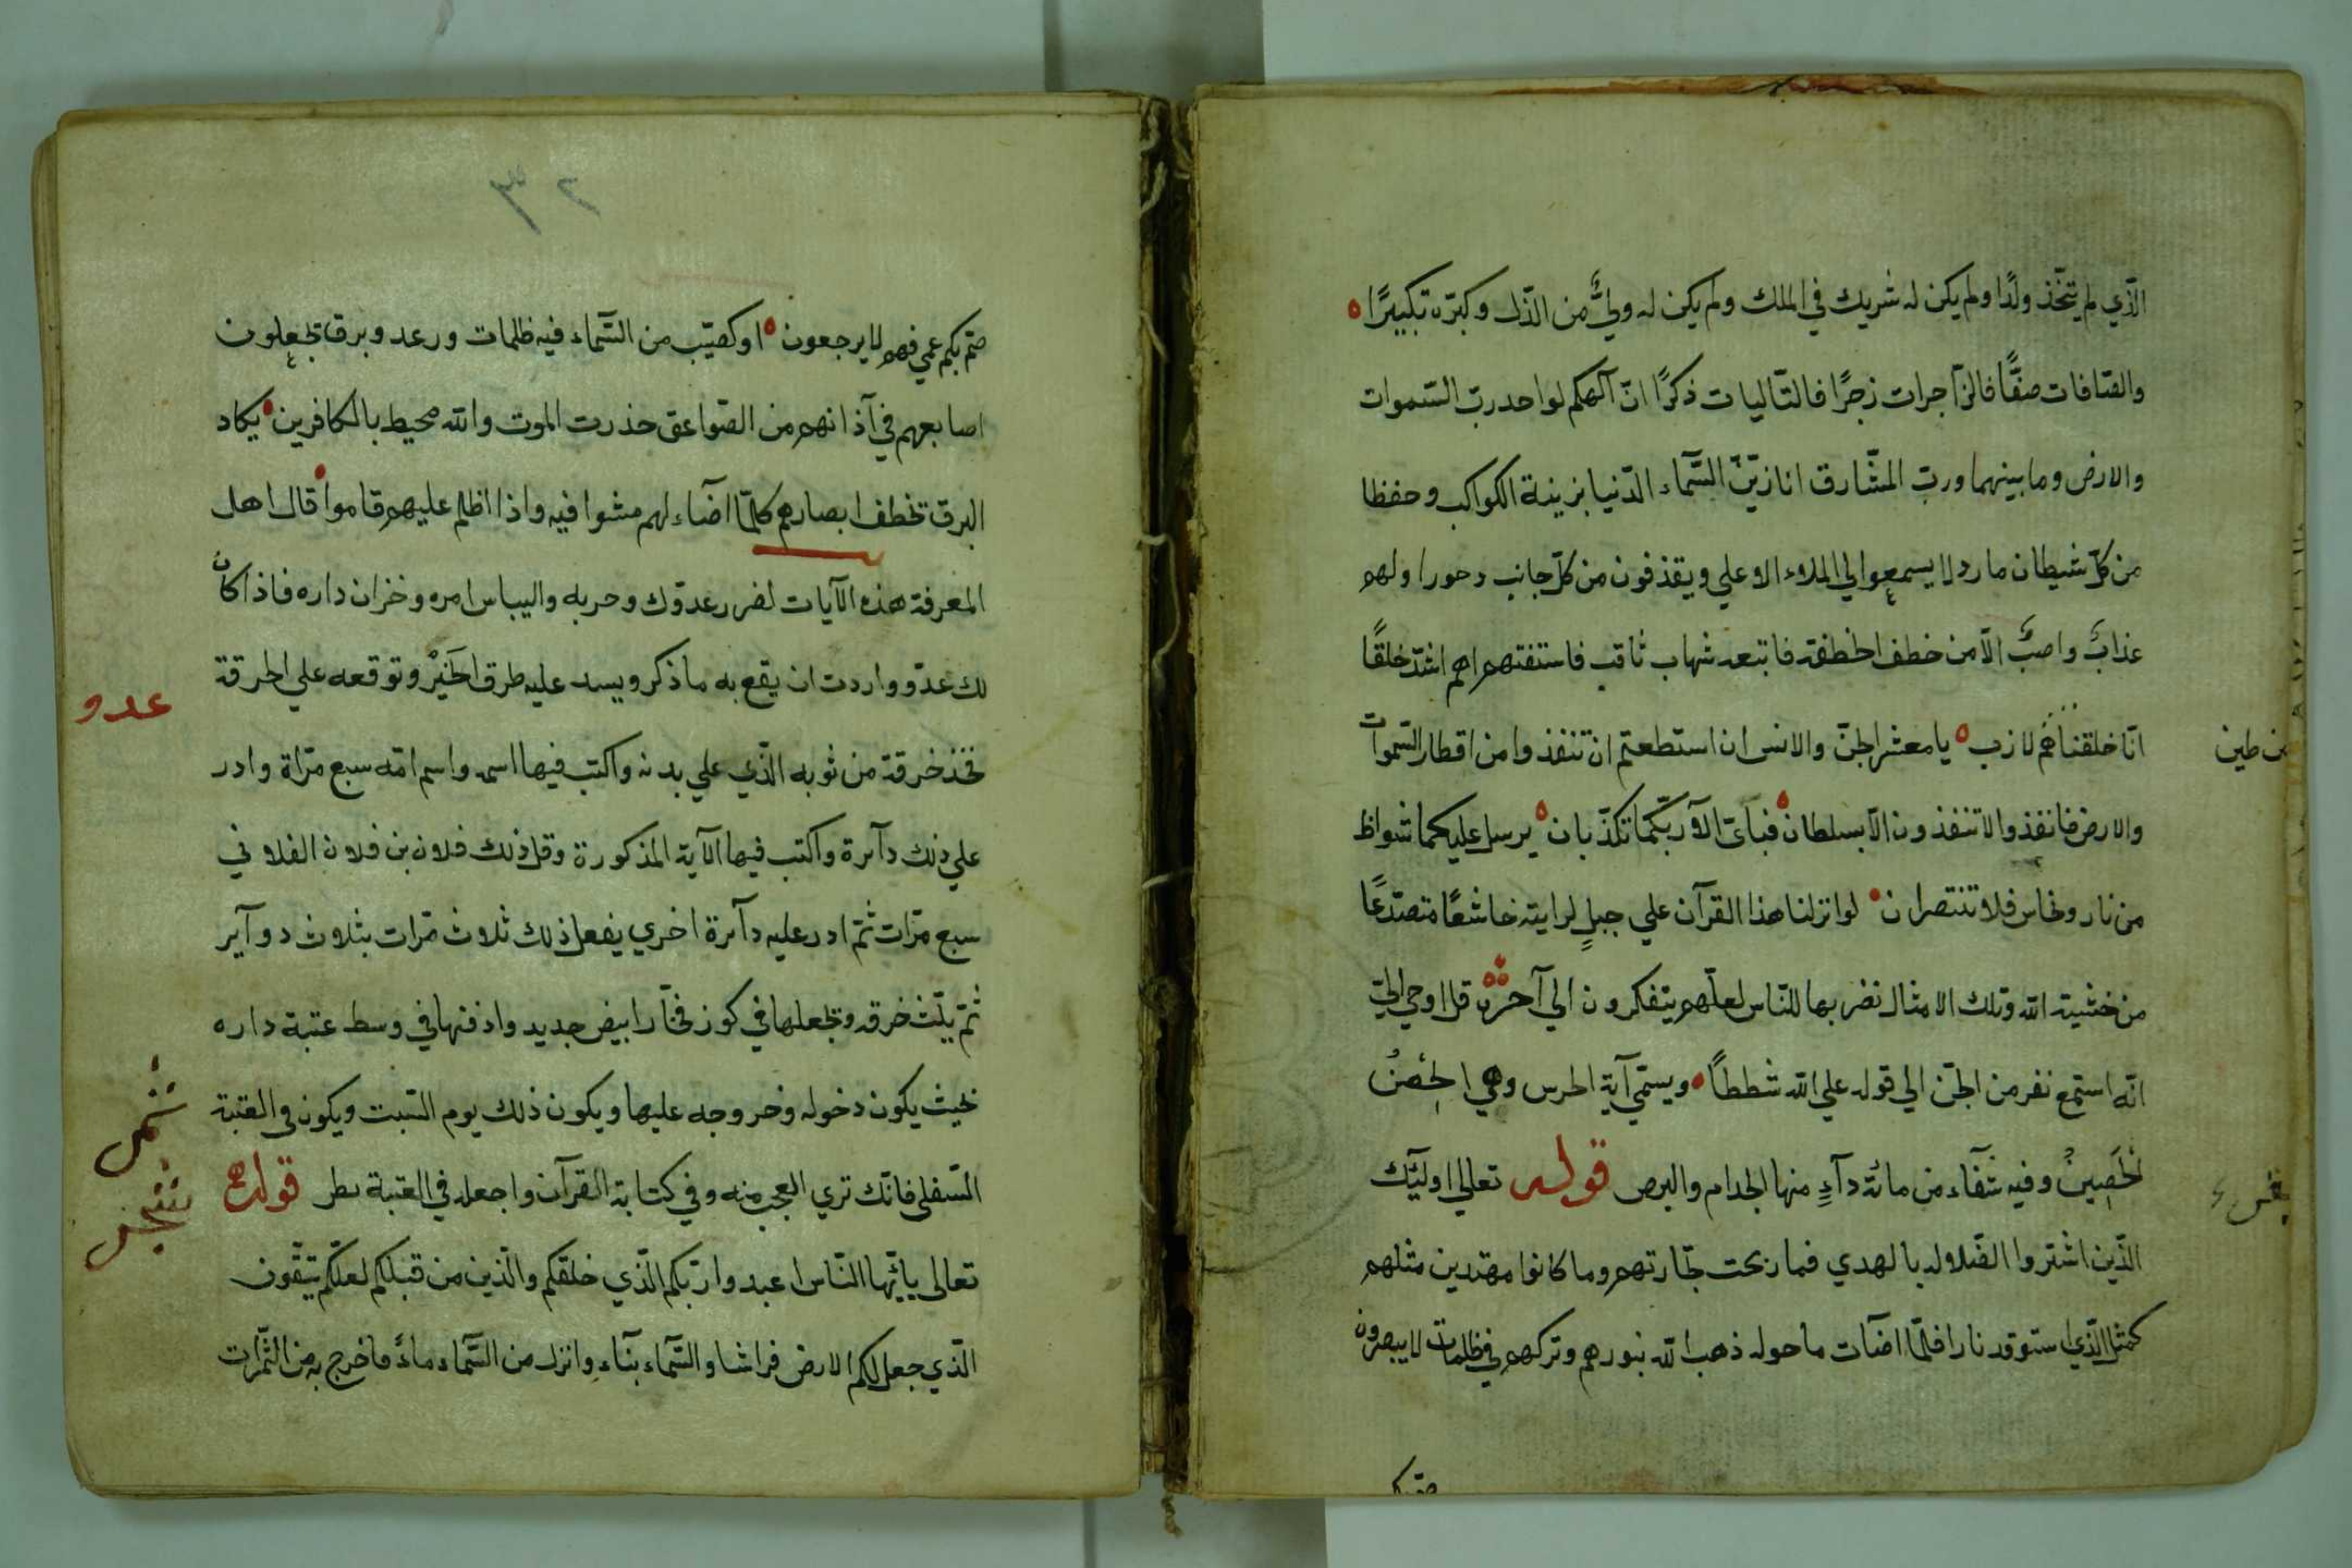 الّذي لم يتّخذ ولدًا ولم يكن له شريك في الملك ولم يكن له وليٌّ من الذّل وكبّره تكبيرًا
والصّافات صفًّا فالزّاجرات زجرًا فالتّاليات ذكرًا انّ آلهكم لواحد ربّ السّموات
والارض وما بينهما وربّ المشارق انا زيّنّ السّماء الدّنيا بزينة الكواكب وحفظا
من كلّ شيطان مارد لا يسمعوا الي الملاء الاعلي ويقذفون من كلّ جانب دحورا ولهم
عذابٌ واصبٌ الّا من خطف الخطفة فاتبعه شهاب ثاقب فاستفتهم اهم اشدّ خلقًا
انّا خلقناهم لازب يا معشر الجنّ والانس ان استطعتم ان تنفذوا من اقطار السّموات
من طين
والارض فانفذوا لا تنفذون الّا بسلطان فبايّ الآء ربّكما تكذّبان يرسل عليكما شواظ
من نار ونحاس فلا تنتصران لو انزلنا هذا القرآن علي جبلٍ لرايته خاشعًا متصدّعًا
من خشية الله وتلك الامثال نضربها للنّاس لعلّهم يتفكرون الي آخره قل اوحي اليّ
انّه استمع نفر من الجنّ الي قوله علي الله شططاً ويسمّي آية الحرس وهي الحِصنُ
الحَصِينُ وفيه شفاء من مائة دآءٍ منها الجذام والبرص قوله تعالي اولئك
الّذين اشتروا الضّلاله بالهدي فما ربحت تجارتهم وما كانوا مهتدين مثلهم
كمثل الّذي استوقد نارا فلمّا اضآت ما حوله ذهب الله بنورهم وتركهم في ظلمات لا يبصرون
صمّ بكم
٣٢
صمّ بكم عمي فهم لا يرجعون او كصيّب من السّماء فيه ظلمات ورعد وبرق تجعلون
اصابعهم في آذانهم من الصّواعق حذرت الموت والله محيط بالكافرين يكاد
البرق تخطف ابصارهم كلّما اضآء لهم مشوا فيه واذا اظلم عليهم قاموا قال اهل
المعرفة هذه الآيات لضرر عدوّك وحربه واليباس امره وخزان داره فاذا كان
لك عدّو واردت ان يقع به ما ذكر ويسد عليه طرق الخَيرْ وتوقعه علي الحرقة
عدو
فخذ خرقة من ثوبه الّذي علي بدنه واكتب فيها اسمه واسم امّه سبع مرّاة وادر
علي ذلك دآئرة واكتب فيها الآية المذكورة وقل ذلك فلان بن فلان الفلاني
سبع مرّات ثمّ ادر عليه دآئرة اخري يفعل ذلك ثلاث مرّات بثلاث دوآير
ثمّ يلّث خرقه وتجعلها في كوز فخّار ابيض جديد وادفنها في وسط عتبة داره
بحيث يكون دخوله وخروجه عليها ويكون ذلك يوم السّبت ويكون في العتبة
السّفلي فانّك تري العجب منه وفي كتابة القرآن واجعله في العتبة قوله
تعالى يايّها النّاس اعبدوا ربّكم الّذي خلقكم والّذين من قبلكم لعلّكم تتّقون
الّذي جعل لكم الارض فراشا والسّماء بنّاء وانزل من السّماء ماءً فاخرج به من الثّمرات